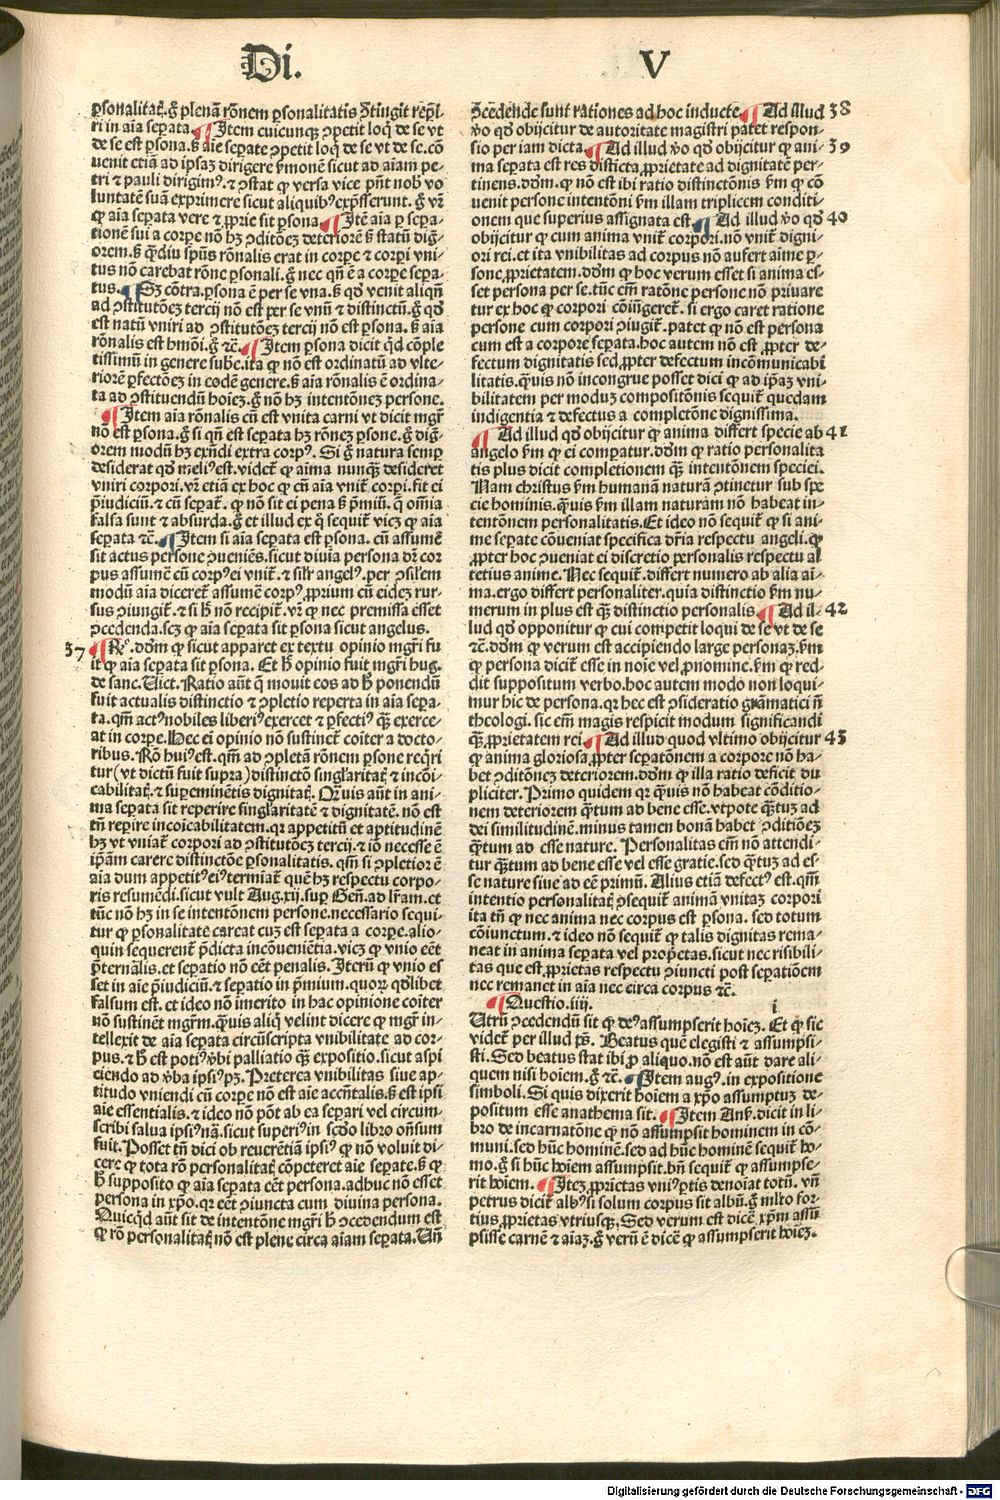 Di. V
ꝑsonalitat̄ꝭ. g̊ plenā rōnem ꝑsonalitatis ꝯtingit reꝑi⸗
ri in aīa seꝑata. ¶ Item cuicunqꝫ ꝯpetit loqͥ de se vt
de se est ꝑsona. ẜ aīe seꝑate ꝯpetit loqͥ de se vt de se. cō
uenit etiā ad ipsaꝫ dirigere ẜmonē sicut ad aīam pe⸗
tri ⁊ pauli dirigimꝰ. ⁊ ꝯstat ꝙ versa vice pn̄t nob̄ vo
luntatē suā exprimere sicut aliquibꝰ exp̄sserunt. g̊ vr̄
ꝙ aīa seꝑata vere ⁊ ꝓprie sit ꝑsona. ¶ Itē aīa ꝑ seꝑa⸗
tionē sui a corꝑe nō hꝫ ꝯditōeꝫ deteriorē ẜ statū diḡ⸗
orem. ẜ qͣdiu spūs rōnalis erat in corꝑe ⁊ corpi vni⸗
tus nō carebat rōne ꝑsonali. g̊ nec qn̄ ē a corꝑe seꝑa⸗
tus. ¶ Sꝫ cōtra. ꝑsona ē per se vna. ẜ qd̓ venit aliqn̄
ad ꝯstitutōeꝫ tercij nō est per se vnū ⁊ distinctū. g̊ qd̓
est natū vniri ad ꝯstitutōeꝫ tercij nō est ꝑsona. ẜ aīa
rōnalis est hmōi. g̊ ⁊c̄. ¶ Item ꝑsona dicit qͥd cōple
tissimū in genere sube. ita ꝙ nō est ordinatū ad vlte⸗
riorē ꝑfectōeꝫ in eodē genere. ẜ aīa rōnalis ē ordina⸗
ta ad ꝯstituendū hoīeꝫ. g̊ nō hꝫ intentōneꝫ persone.
¶ Item aīa rōnalis cū est vnita carni vt dicit mgr̄
nō est ꝑsona. g̊ si qn̄ est seꝑata hꝫ rōneꝫ ꝑsone. g̊ diḡ⸗
orem modū hꝫ exn̄di extra corpꝰ. Si g̊ natura semꝑ
desiderat qd̓ meliꝰ est. videt̄ ꝙ aīma nunqͣꝫ desideret
vniri corpori. vr̄ etiā ex hoc ꝙ cū aīa vnit̄ corpi. fit ei
p̄iudiciū. ⁊ cū seꝑat̄. ꝙ nō sit ei pena ẜ p̄miū. q̄ oīnia
falsa sunt ⁊ absurda. g̊ et illud ex q̊ sequit̄ vicꝫ ꝙ aīa
seꝑata ⁊c̄. ¶ Item si aīa seꝑata est ꝑsona. cū assumē
sit actus persone ꝯueniēs. sicut diuīa persona dr̄ cor
pus assumē cū corpꝰ ei vnit̄. ⁊ silr̄ angelꝰ. per ꝯsilem
modū aīa diceret̄ assumē corpꝰ ꝓprium cū eideꝫ rur⸗
sus ꝯiungit̄. ⁊ si h̄ nō recipit̄. vr̄ ꝙ nec premissa esset
ꝯcedenda. scꝫ ꝙ aīa seꝑata sit ꝑsona sicut angelus.
37 ¶ Rº. dōm ꝙ sicut apparet ex textu opinio mgr̄i fu
it ꝙ aīa seꝑata sit ꝑsona. Et h̄ opinio fuit mgr̄i hug.
de sanc. Uict. Ratio aūt q̄ mouit eos ad h̄ ponendū
fuit actualis distinctio ⁊ ꝯpletio reperta in aīa seꝑa⸗
ta. qm̄ actꝰ nobiles liberiꝰ exercet ⁊ ꝑfectiꝰ qͣꝫ exerce⸗
at in corꝑe. Hec ei opinio nō sustinet̄ cōiter a docto⸗
ribus. Rō huiꝰ est. qm̄ ad ꝯpletā rōnem ꝑsone reqͥri
tur (vt dictū fuit supra) distinctō singl̓aritat̄ꝭ ⁊ incōi
cabilitat̄ꝭ. ⁊ suꝑeminētis dignitat̄ꝭ. Qͣuis aūt in ani⸗
ma seꝑata sit reperire singl̓aritatē ⁊ dignitatē. nō est
tn̄ reꝑire incoīcabilitatem. qr appetitū et aptitudinē
hꝫ vt vniat̄ corpori ad ꝯstitutōeꝫ tercij. ⁊ iō necesse ē
ip̄am carere distinctōe ꝑsonalitatis. qm̄ si ꝯpletior ē
aīa dum appetitꝰ eiꝰ termiat̄ quē hꝫ respectu corpo⸗
ris resumēdi. sicut vult Aug. xij. suꝑ Geñ. ad lr̄am. et
tūc nō hꝫ in se intentōnem persone. necessario sequi⸗
tur ꝙ ꝑsonalitate careat cuꝫ est seꝑata a corꝑe. alio⸗
quin sequerent̄ p̄dicta incōueniētia. vicꝫ ꝙ vnio eēt
p̄ternālis. et seꝑatio nō eēt penalis. Iterū ꝙ vnio es
set in aīe p̄iudiciū. ⁊ seꝑatio in p̄mium. quoꝝ qd̓libet
falsum est. et ideo nō īmerito in hac opinione cōiter
nō sustinēt mgr̄m. qͣuis aliqͥ velint dicere ꝙ mgr̄ in⸗
tellexit de aīa seꝑata circūscripta vnibilitate ad cor⸗
pus. ⁊ h̄ est potiꝰ ṽbi palliatio qͣꝫ expositio. sicut aspi
ciendo ad ṽba ipsiꝰ pꝫ. Preterea vnibilitas siue ap⸗
titudo vniendi cū corꝑe nō est aīe accn̄talis. ẜ est ipsi
aīe essentialis. ⁊ ideo nō pōt ab ea seꝑari vel circum⸗
scribi salua ipsiꝰ nā. sicut superiꝰ in scd̓o libro on̄sum
fuit. Posset tn̄ dici ob reuerētiā ipsiꝰ ꝙ nō voluit di⸗
cere ꝙ tota rō personalitat̄ꝭ cōpeteret aīe seꝑate. ẜ ꝙ
h̄ supposito ꝙ aīa seꝑata eēt persona. adhuc nō esset
persona in xp̄o. qr eēt ꝯiuncta cum diuina persona.
Quicqͥd aūt sit de intentōne mgr̄i h̄ ꝯcedendum est
ꝙ rō personalitat̄ꝭ nō est plene circa aīam seꝑata. Un̄
ꝯcedende sunt rationes ad hoc inducte. ¶ Ad illud 38
ṽo qd̓ obijcitur de autoritate magistri patet respon⸗
sio per iam dicta. ¶ Ad illud ṽo qd̓ obijcitur ꝙ ani⸗ 39
ma seꝑata est res distīcta ꝓprietate ad dignitatē per⸗
tinens. dōm. ꝙ nō est ibi ratio distinctōnis ẜm ꝙ cō
uenit persone intentōni ẜm illam triplicem conditi⸗
onem que superius assignata est. ¶ Ad illud ṽo qd̓ 40
obijcitur ꝙ cum anima vnit̄ corpori. nō vnit̄ digni⸗
ori rei. et ita vnibilitas ad corpus nō aufert aīme ꝑ⸗
sone ꝓprietatem. dōm ꝙ hoc verum esset si anima es⸗
set persona per se. tūc em̄ ratōne persone nō priuare
tur ex hoc ꝙ corpori cōiūgeret̄. si ergo caret ratione
persone cum corpori ꝯiugit̄. patet ꝙ nō est persona
cum est a corpore seꝑata. hoc autem nō est ꝓpter de⸗
fectum dignitatis sed ꝓpter defectum incōmunicabi
litatis. qͣuis nō incongrue posset dici ꝙ ad ip̄aꝫ vni⸗
bilitatem per moduꝫ compositōnis sequit̄ quedam
indigentia ⁊ defectus a completōne dignissima.
¶ Ad illud qd̓ obijcitur ꝙ anima differt specie ab 41
angelo ẜm ꝙ ei comꝑatur. dōm ꝙ ratio personalita
tis plus dicit completionem qͣꝫ intentōnem speciei.
Nam christus ẜm humanā naturā ꝯtinetur sub spe
cie hominis. qͣuis ẜm illam naturam nō habeat in⸗
tentōnem personalitatis. Et ideo nō sequit̄ ꝙ si ani⸗
me seꝑate cōueniat specifica dr̄ia respectu angeli. ꝙ
ꝓpter hoc ꝯueniat ei discretio personalis respectu al
terius anime. Nec sequit̄. differt numero ab alia ai⸗
ma. ergo differt personaliter. quia distinctio ẜm nu⸗
merum in plus est qͣꝫ distinctio personalis. ¶ Ad il⸗ 42
lud qd̓ opponitur ꝙ cui competit loqui de se vt de se
⁊c̄. dōm ꝙ verum est accipiendo large personaꝫ. ẜm
ꝙ persona dicit̄ esse in noīe vel ꝓnomine. ẜm ꝙ red⸗
dit suppositum verbo. hoc autem modo non loqui
mur hic de persona. qr hec est ꝯsideratio grāmatici n̄
theologi. sic em̄ magis respicit modum significandi
qͣꝫ ꝓprietatem rei. ¶ Ad illud quod vltimo obijcitur 43
ꝙ anima gloriosa ꝓpter seꝑatōnem a corpore nō ha⸗
bet ꝯditōneꝫ deteriorem. dōm ꝙ illa ratio deficit du
pliciter. Primo quidem qr qͣuis nō habeat cōditio⸗
nem deteriorem qͣꝫtum ad bene esse. vtpote qͣꝫtuꝫ ad
dei similitudinē. minus tamen bonā habet ꝯditiōeꝫ
qͣꝫtum ad esse nature. Personalitas em̄ nō attendi⸗
tur qͣꝫtum ad bene esse vel esse gratie. sed qͣꝫtuꝫ ad es⸗
se nature siue ad eē primū. Alius etiā defectꝰ est. qm̄
intentio personalitat̄ꝭ ꝯsequit̄ animā vnitaꝫ corpori
ita tn̄ ꝙ nec anima nec corpus est ꝑsona. sed totum
cōiunctum. ⁊ ideo nō sequit̄ ꝙ talis dignitas rema⸗
neat in anima seꝑata vel prop̄etas. sicut nec risibili⸗
tas que est ꝓprietas respectu ꝯiuncti post seꝑatiōem
nec remanet in aīa nec circa corpus ⁊c̄.
¶ Questio. iiij. i
Utrū ꝯcedendū sit ꝙ deꝰ assumpserit hoīeꝫ. Et ꝙ sic
videt̄ per illud ps̄. Beatus quē elegisti ⁊ assumpsi⸗
sti. Sed beatus stat ibi ꝓ aliquo. nō est aūt dare ali⸗
quem nisi hoīem. g̊ ⁊c̄. ¶ Item augꝰ. in expositione
simboli. Si quis dixerit hoīem a xp̄o assumptuꝫ de⸗
positum esse anathema sit. ¶ Item Anẜ. dicit in li⸗
bro de incarnatōne ꝙ nō assumpsit hominem in cō⸗
muni. sed hūc hominē. sed ad hūc hominē sequit̄ ho⸗
mo. g̊ si hūc hoīem assumpsit. bn̄ sequit̄ ꝙ assumpse⸗
rit hoīem. ¶ Iteꝫ ꝓprietas vniꝰ ꝑtis denoīat totū. vn̄
petrus dicit̄ albꝰ si solum corpus sit albū. g̊ ml̓to for⸗
tius ꝓprietas vtriusqꝫ. Sed verum est dicē xp̄m assū
psisse carnē ⁊ aīaꝫ. g̊ verū ē dicē ꝙ assumpserit hoīeꝫ.
Digitalisierung gefördert durch die Deutsche Forschungsgemeinschaft - DFG